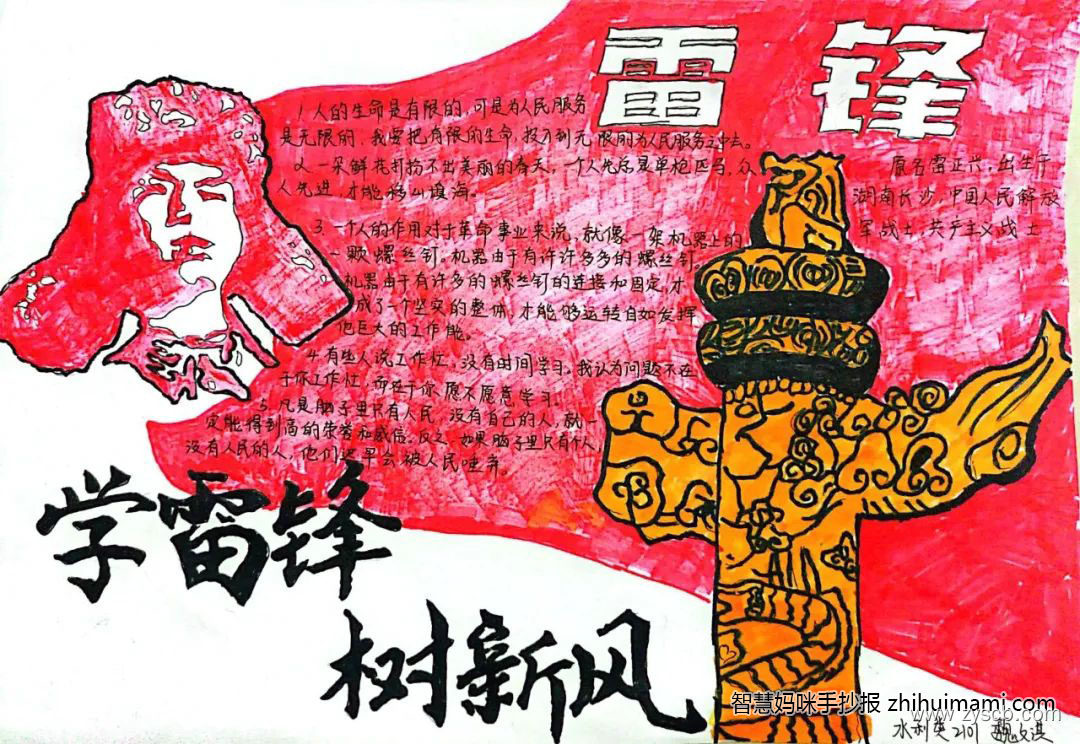 雷锋
1、人的生命是有限的,可是为人民服务
是无限的,我要把有限的生命,投入到无限的为人民服务之中去。
2、一朵鲜花打扮不出美丽的春天,一个人先进总是单枪匹马,众
人先进,才能移山填海。
3、一个人的作用对于革命事业来说,就像一架机器上的
一颗螺丝钉。机器由于有许许多多的螺丝钉。
机器由于有许多的螺丝钉的连接和固定,才
成了一个坚实的整体,才能够运转自如发挥
他巨大的工作能。
4、有些人说工作忙,没有时间学习,我认为问题不在
于你工作忙,而在于你愿不愿意学习。
5、凡是脑子里只有人民,没有自己的人,就一
定能得到高的荣誉和威信。反之,如果脑子里只有个人,
没有人民的人,他们迟早会被人民唾弃。
原名雷正兴,出生于
湖南长沙,中国人民解放
军战士,共产主义战士
学雷锋
树新风
智慧妈咪手抄报 zhihuimami.com
www.zyscb.com
水利类2101 魏